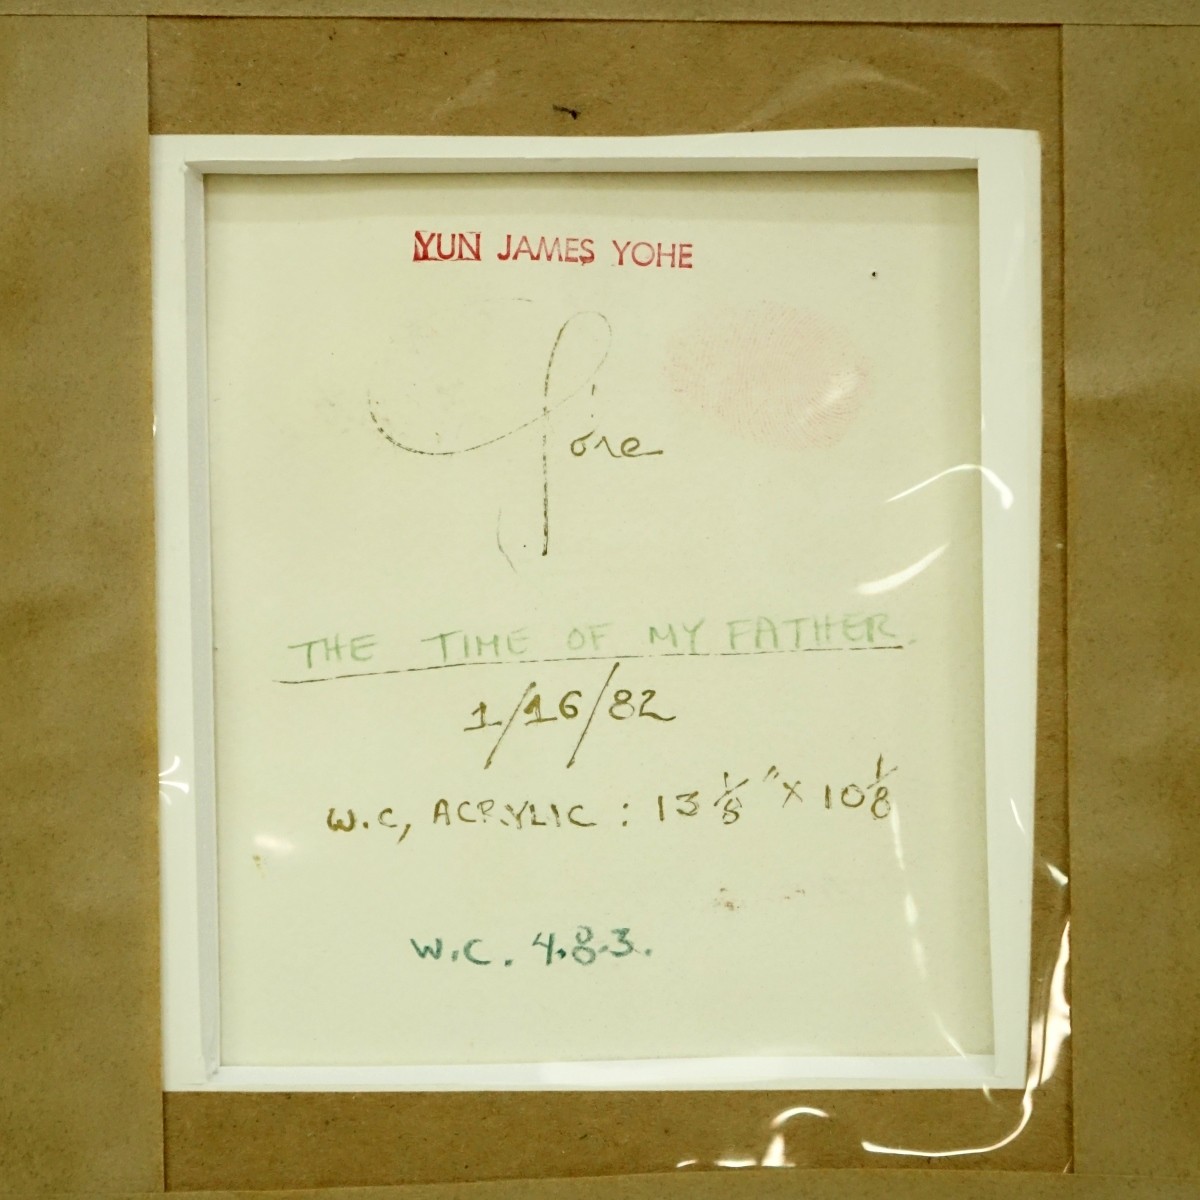 YUN JAMES YOHE
THE TIME OF MY FATHER.
1/16/82
W.C, ACRYLIC : 13 1/8" X 10 1/8
W.C. 4.8.3.